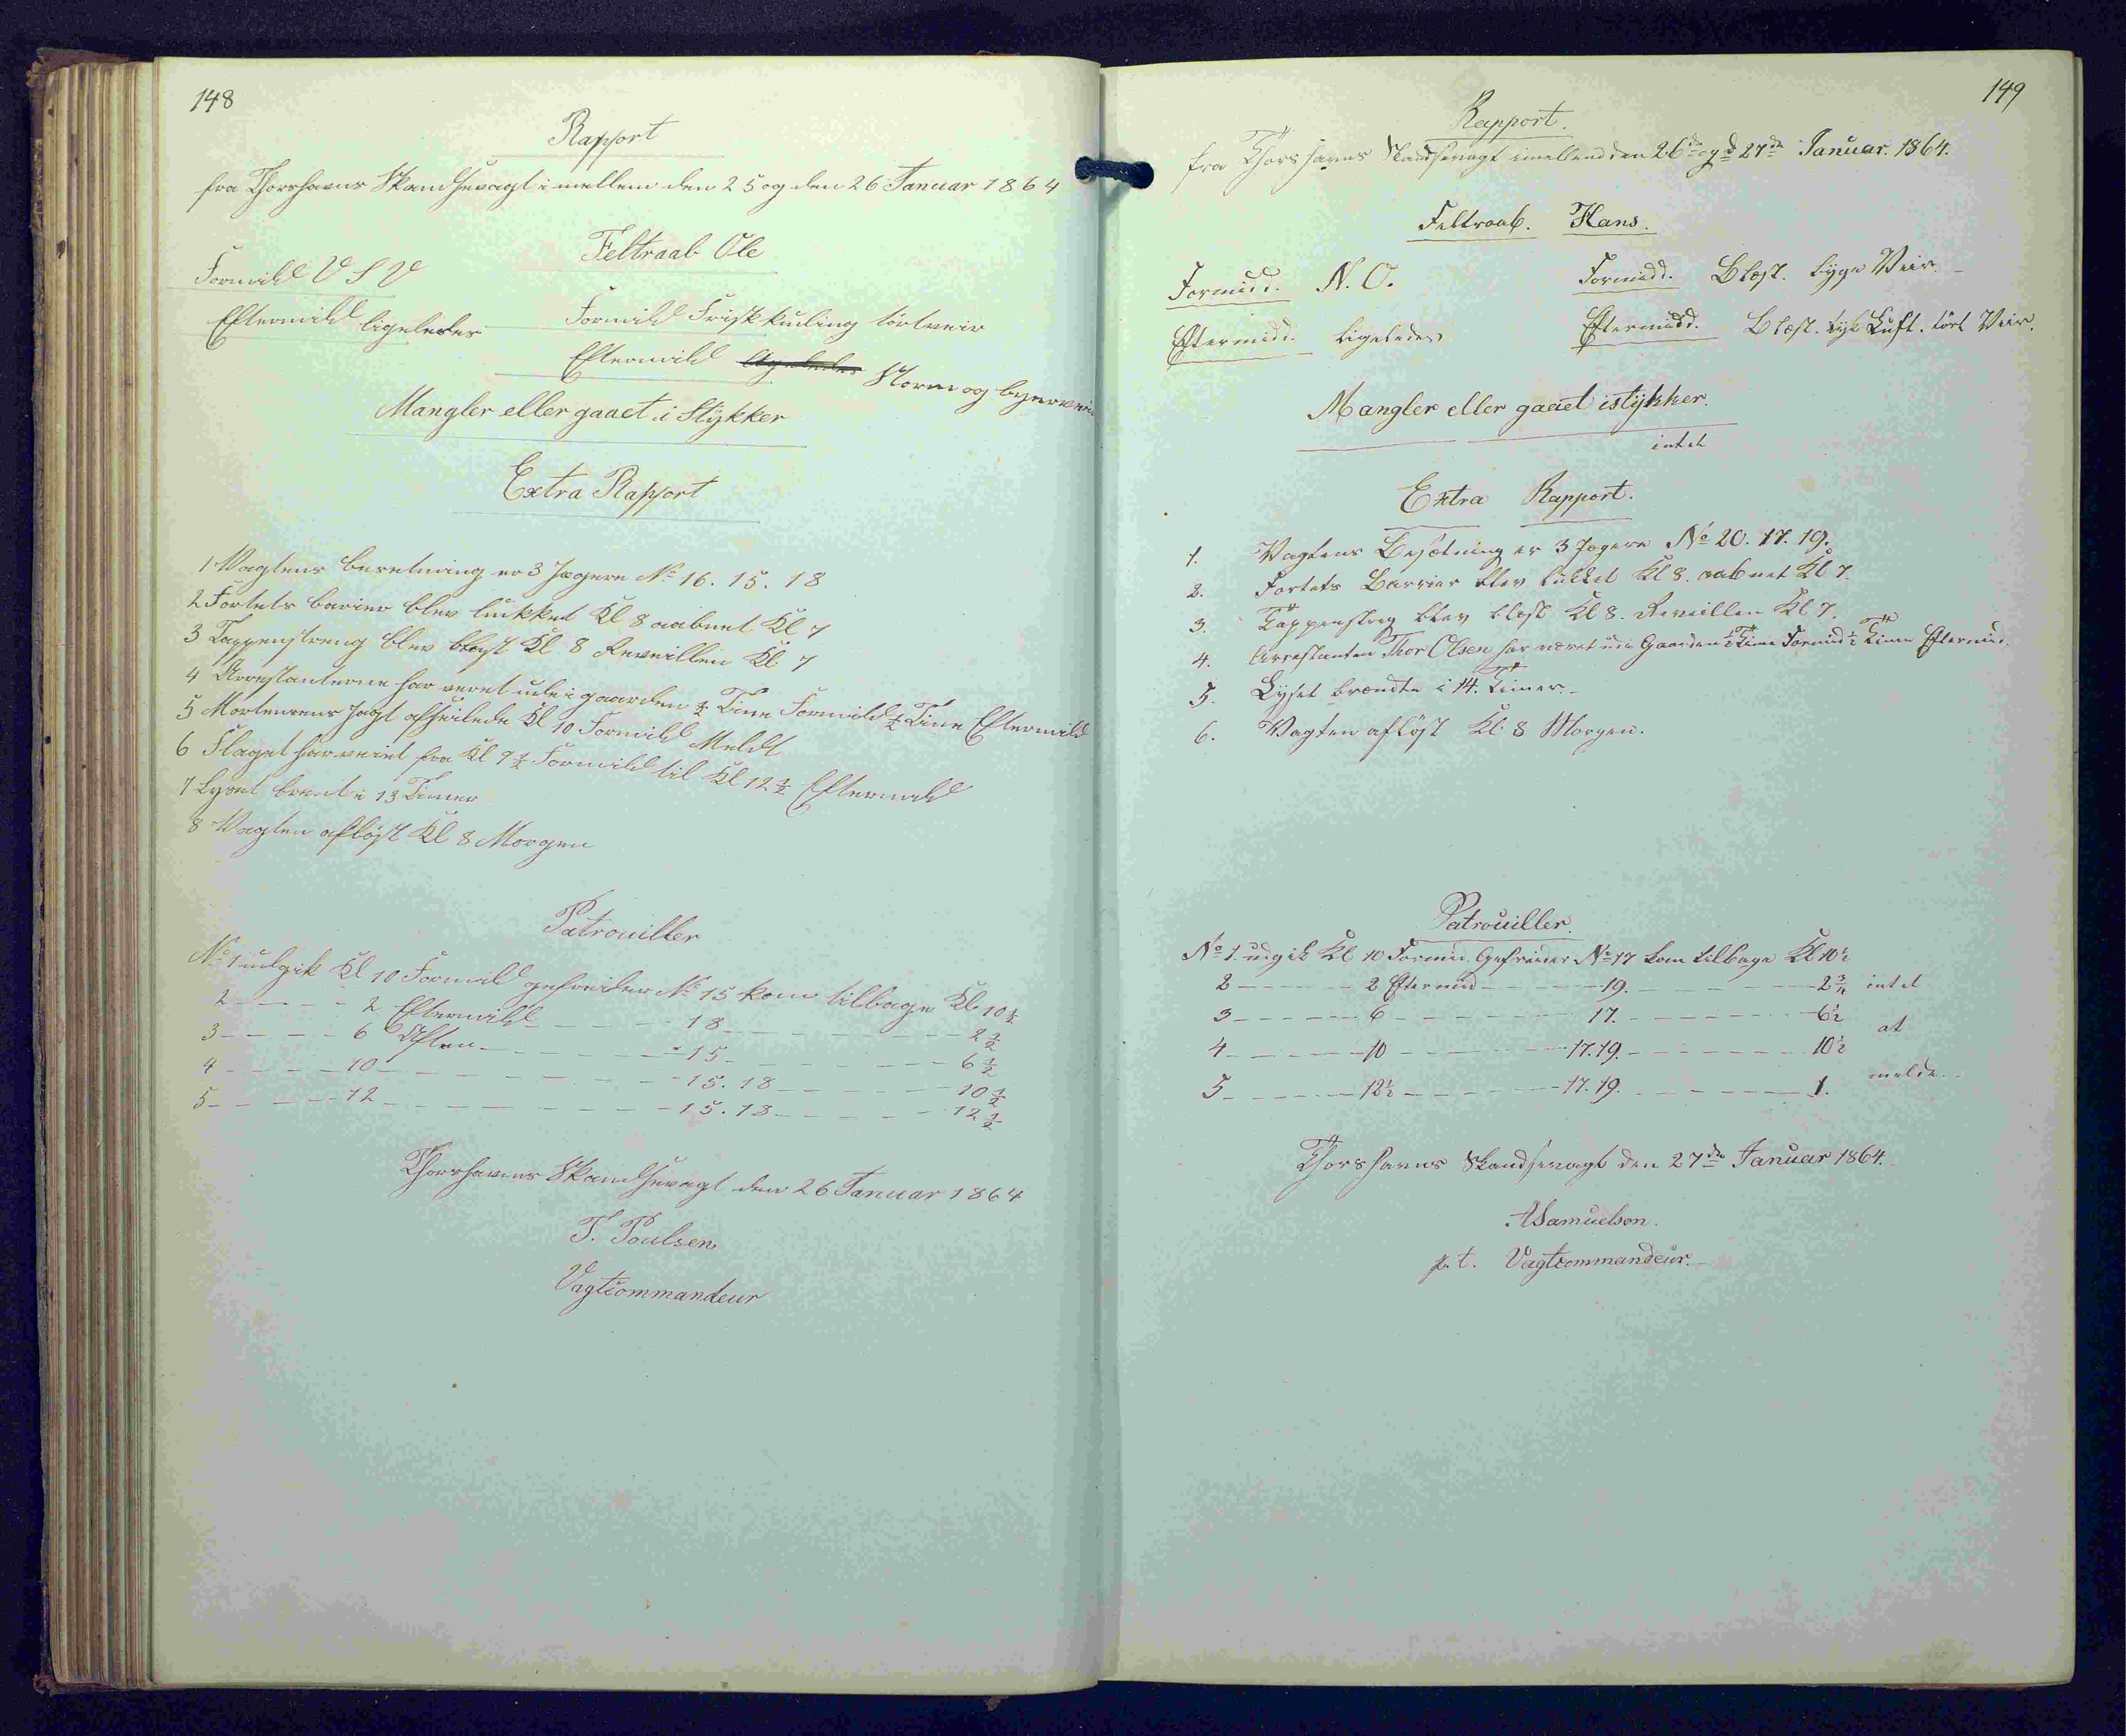 148
Rapport
fra Thorshavns Skandsevagt imellem den 25 og den 26 Januar 1864
Feltraab Ole
Formidd V S V
Eftermidd ligeledes
Formidd Frisk kuling tørtveir
Eftermidd ligeledes Storm og byerveir
Mangler eller gaaet i Stykker
Extra Rapport
1 Vagtens besetning er 3 Jægere No 16. 15. 18
2 Fortets barier blev lukket Kl 8 aabnet Kl 7
3 Tappenstreng blev blæst Kl 8 Reveillen Kl 7
4 Arrestanterne har veret ude i gaarden ½ Time Formidd ½ Time Eftermidd
5 Mortensens Jagt afseilede Kl 10 Formidd Meldt
6 Flaget har veiet fra Kl 7½ Formidd til Kl 12½ Eftermidd
7 Lyset brendt i 13 Timer
8 Vagten afløst Kl 8 Morgen
Patrouiller
No 1 udgik Kl 10 Formidd gefreider No 15 kom tilbage Kl. 10½
2 - - - - 2 Eftermidd - - - - 18 - - - - 2½
3 - - - - 6 Aften - - - - 15 - - - - 6½
4 - - - - 10 - - - - 15. 18 - - - - 10½
5 - - - - 12 - - - - 15. 18 - - - - 12½
Thorshavns Skandsevagt den 26 Januar 1864
T. Poulsen
Vagtcommandeur
149
Rapport.
fra Thorshavns Skandsevagt imellem den 26de og d 27de Januar. 1864.
Feltraab. Hans.
Formidd. N. O.
Formidd. Blæst. byge Veir.
Eftermidd. ligeledes
Eftermidd. Blæst. tyk Luft. tört Veir.
Mangler eller gaaet istykker.
intet
Extra Rapport.
1. Vagtens Besætning er 3 Jægere No 20. 17. 19.
2. Fortets Barrier blev lukket Kl 8. aabnet Kl 7.
3. Tappenstreg blev blæst Kl 8. Reveillen Kl 7.
4. Arrestanten Thor Olsen har været ude i Gaarden ½ Time Formid ½ Time Eftermid.
5. Lyset brændte i 14. Timer.
6. Vagten afløst Kl. 8 Morgen.
Patrouiller.
No 1. udgik Kl 10 Formid. Gefreider No 17 kom tilbage Kl 10½
2 - - - - 2 Eftermid - - - - 19. - - - - 2¾ intet
3 - - - - 6 - - - - 17. - - - - 6½ at
4 - - - - 10 - - - - 17. 19. - - - - 10½
5 - - - - 12½ - - - - 17. 19. - - - - 1. melde.
Thorshavns Skandsevagt den 27de Januar 1864.
A Samuelsen.
p. t. Vagtcommandeur.